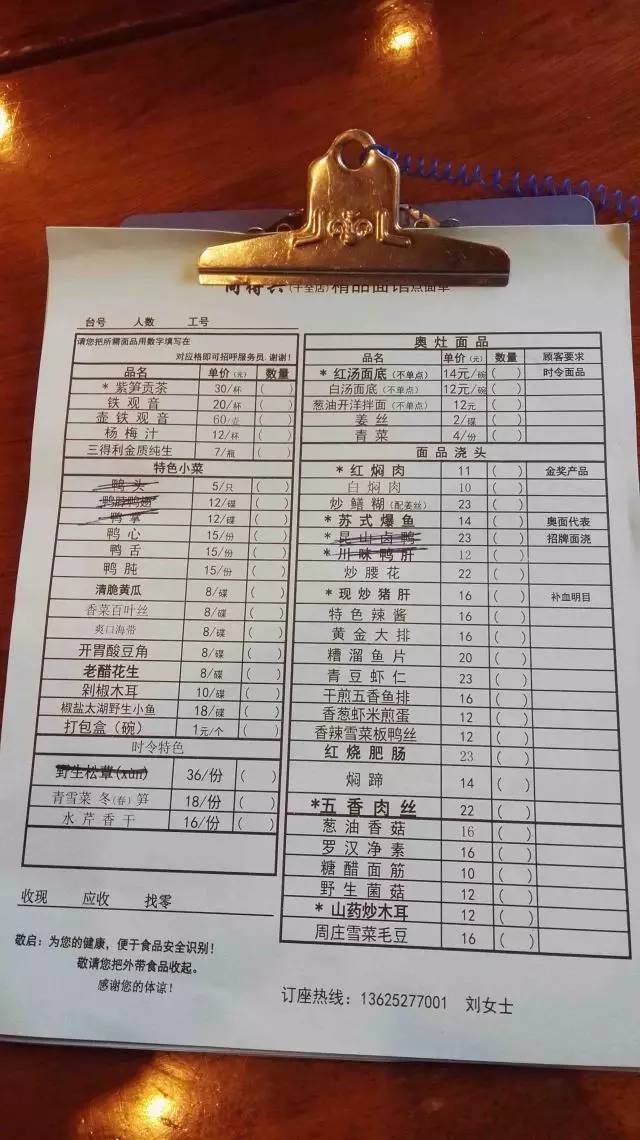 (千全店)精品面馆点面单
台号 人数 工号
请您把所需面品用数字填写在
对应格即可招呼服务员.谢谢！
品名 单价(元) 数量
* 紫笋贡茶 30/杯 ( )
铁观音 20/杯 ( )
壶铁观音 60/壶 ( )
杨梅汁 12/杯 ( )
三得利金质纯生 7/瓶 ( )
特色小菜
鸭头 5/只 ( )
鸭脖鸭翅 12/碟 ( )
鸭掌 12/碟 ( )
鸭心 15/份 ( )
鸭舌 15/份 ( )
鸭肫 15/份 ( )
清脆黄瓜 8/碟 ( )
香菜百叶丝 8/碟 ( )
爽口海带 8/碟 ( )
开胃酸豆角 8/碟 ( )
老醋花生 8/碟 ( )
剁椒木耳 10/碟 ( )
椒盐太湖野生小鱼 18/碟 ( )
打包盒（碗） 1元/个 ( )
时令特色
野生松蕈(xùn) 36/份 ( )
青雪菜 冬(春)笋 18/份 ( )
水芹香干 16/份 ( )
收现 应收 找零
敬启：为您的健康，便于食品安全识别！
敬请您把外带食品收起。
感谢您的体谅！
奥灶面品
品名 单价(元) 数量 顾客要求
* 红汤面底(不单点) 14元/碗 ( ) 时令面品
白汤面底(不单点) 12元/碗 ( )
葱油开洋拌面(不单点) 12元 ( )
姜丝 2/碟 ( )
青菜 4/份 ( )
面品浇头
* 红焖肉 11 ( ) 金奖产品
白焖肉 10 ( )
炒鳝糊(配姜丝) 23 ( )
* 苏式爆鱼 14 ( ) 奥面代表
* 昆山卤鸭 23 ( ) 招牌面浇
* 川味鸭肝 12 ( )
炒腰花 22 ( )
* 现炒猪肝 16 ( ) 补血明目
特色辣酱 16 ( )
黄金大排 16 ( )
糟溜鱼片 20 ( )
青豆虾仁 23 ( )
干煎五香鱼排 16 ( )
香葱虾米煎蛋 12 ( )
香辣雪菜板鸭丝 12 ( )
红烧肥肠 23 ( )
焖蹄 14 ( )
*五香肉丝 22 ( )
葱油香菇 16 ( )
罗汉净素 16 ( )
糖醋面筋 10 ( )
野生菌菇 12 ( )
* 山药炒木耳 12 ( )
周庄雪菜毛豆 16 ( )
订座热线：13625277001 刘女士